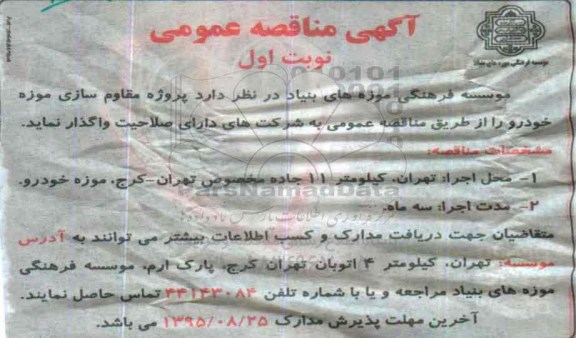 آگهی مناقصه عمومی
نوبت اول
موسسه فرهنگی موزه های بنیاد
موسسه فرهنگی موزه های بنیاد در نظر دارد پروژه مقاوم سازی موزه
خودرو را از طریق مناقصه عمومی به شرکت های دارای صلاحیت واگذار نماید.
مشخصات مناقصه:
۱- محل اجرا: تهران، کیلومتر ۱۱ جاده مخصوص تهران-کرج، موزه خودرو.
ParsNamadData
۲- مدت اجرا: سه ماه.
متقاضیان جهت دریافت مدارک و کسب اطلاعات بیشتر می توانند به آدرس
موسسه: تهران، کیلومتر ۴ اتوبان تهران کرج، پارک ارم، موسسه فرهنگی
موزه های بنیاد مراجعه و یا با شماره تلفن ۴۴۱۴۳۰۸۴ تماس حاصل نمایند.
آخرین مهلت پذیرش مدارک ۱۳۹۵/۰۸/۲۵ می باشد.